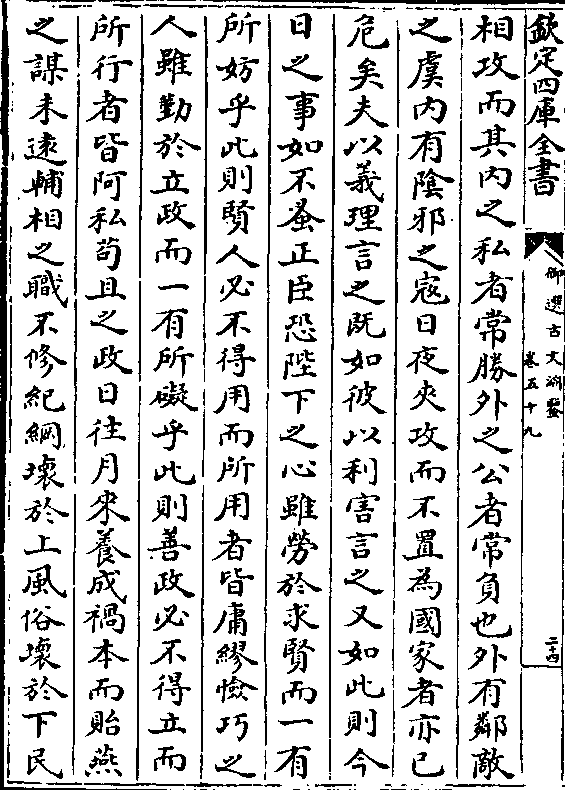 欽定四庫全書
御選古文淵鑒
卷五十九
二十四
相攻而其内之私者常勝外之公者常負也外有鄰敵
之虞内有陰邪之寇日夜夾攻而不置為國家者亦已
危矣夫以義理言之既如彼以利害言之又如此則今
日之事如不蚤正臣恐陛下之心雖勞於求賢而一有
所妨乎此則賢人必不得用而所用者皆庸繆憸巧之
人雖勤於立政而一有所礙乎此則善政必不得立而
所行者皆阿私苟且之政日往月來養成禍本而貽燕
之謀未遠輔相之職不修紀綱壞於上風俗壞於下民